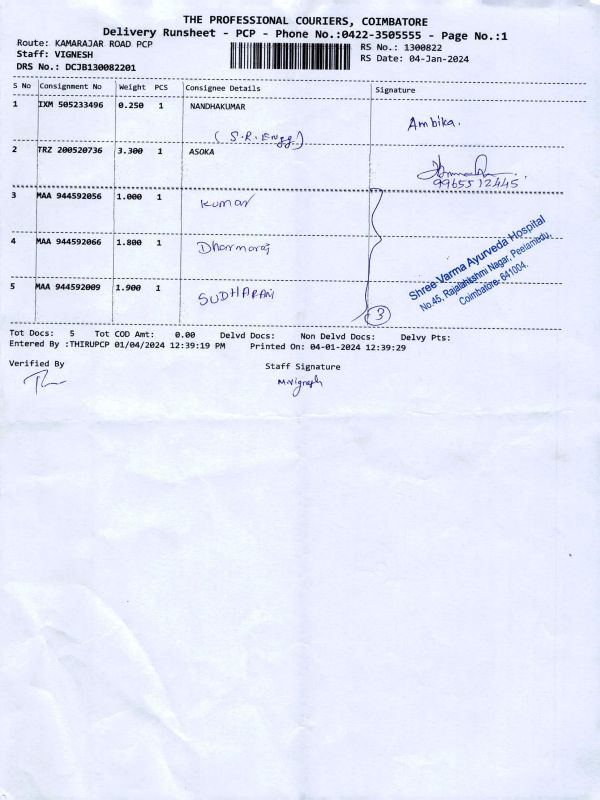 THE PROFESSIONAL COURIERS, COIMBATORE
Delivery Runsheet - PCP - Phone No.:0422-3505555 - Page No.:1
Route: KAMARAJAR ROAD PCP RS No.: 1300822
Staff: VIGNESH RS Date: 04-Jan-2024
DRS No.: DCJB130082201
S No Consignment No Weight PCS Consignee Details Signature
1 IXM 505233496 0.250 1 NANDHAKUMAR
Ambika.
(S.R. Engg.)
2 TRZ 200520736 3.300 1 ASOKA
9965512445.
3 MAA 944592056 1.000 1 Kumar
4 MAA 944592066 1.800 1 Dharmaraj
5 MAA 944592009 1.900 1 SUDHARANI
3
Shree Varma Ayurveda Hospital
No.45, Rajalakshmi Nagar, Peelamedu,
Coimbatore- 641004.
Tot Docs: 5 Tot COD Amt: 0.00 Delvd Docs: Non Delvd Docs: Delvy Pts:
Entered By :THIRUPCP 01/04/2024 12:39:19 PM Printed On: 04-01-2024 12:39:29
Verified By Staff Signature
M.Vignesh